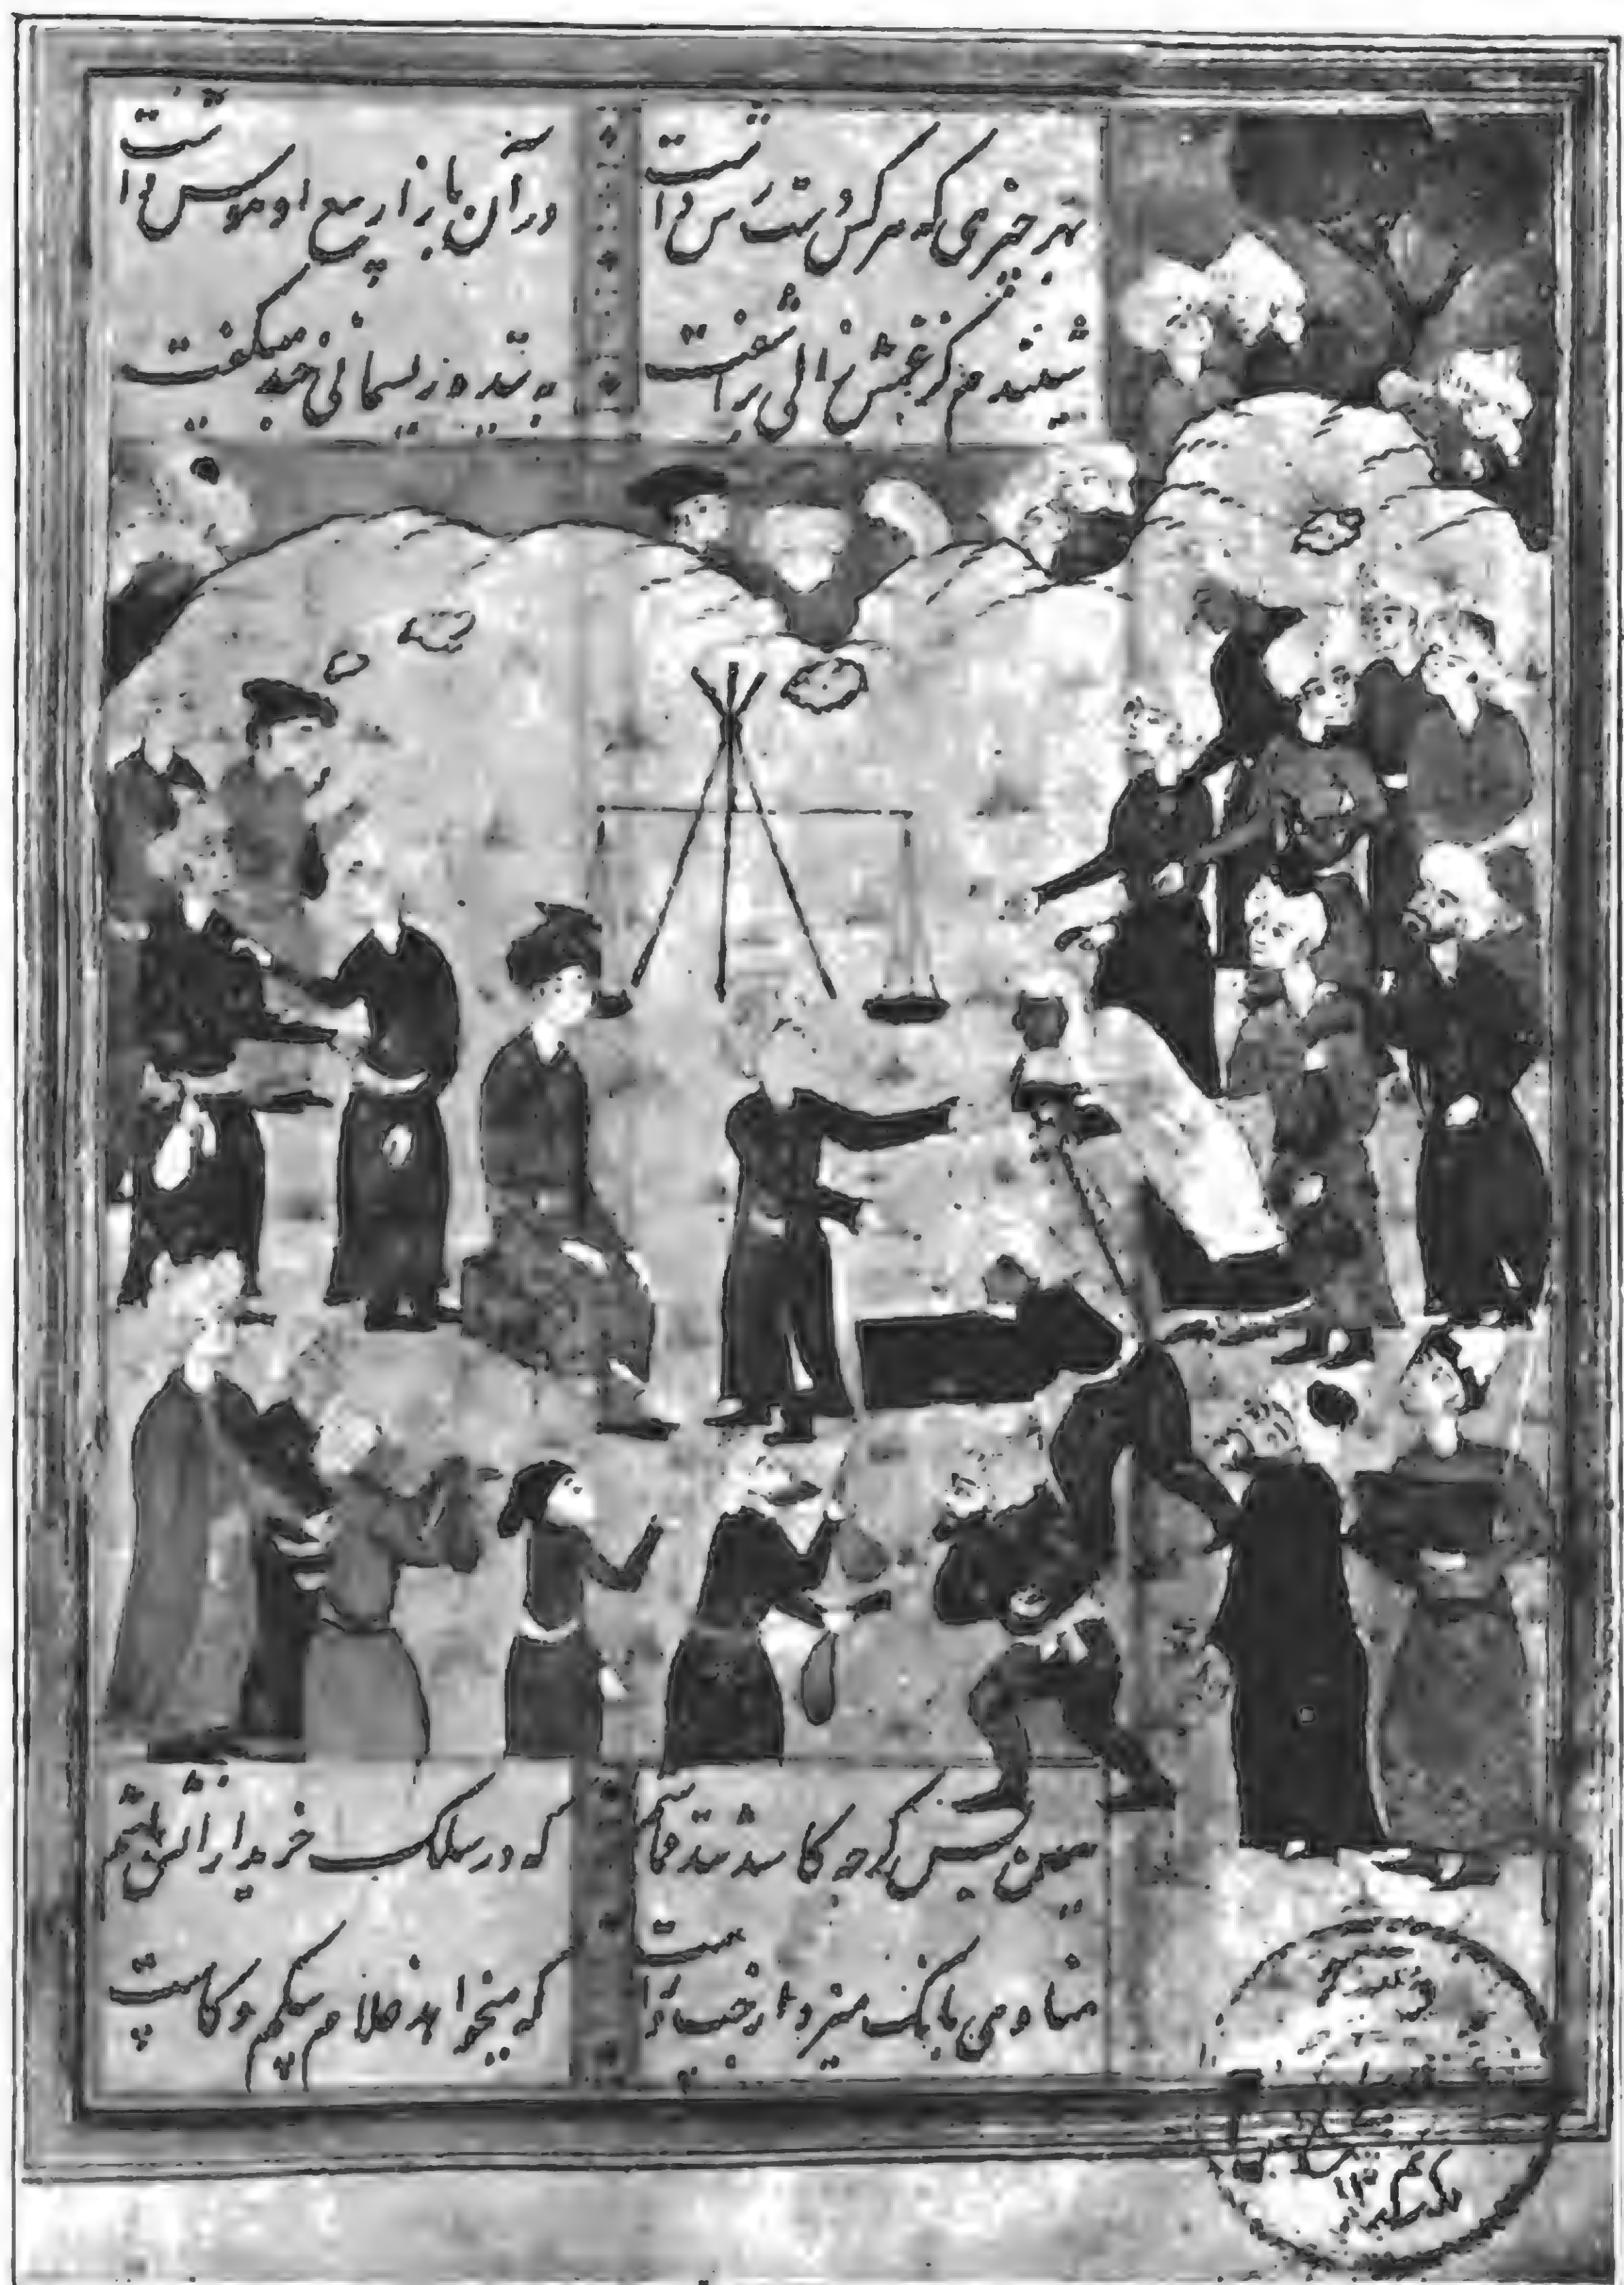 بهر چیزی که هر کس دسترس داشت
در آن بازار بیع او هوس داشت
شنیدم کز غمش زالی برآشفت
تنیده ریسمانی چند میگفت
همین بس گرچه کاسد قماشم
که در سلک خریدارانش باشم
منادی بانگ میزد از چپ و راست
که میخواهد غلامی بی کم و کاست